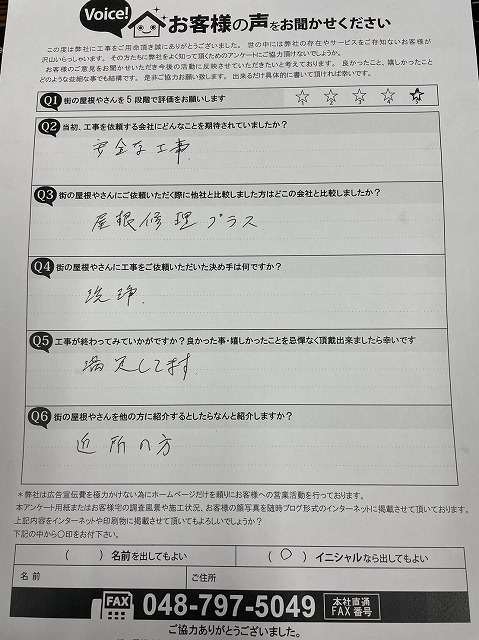 Voice! お客様の声をお聞かせください
この度は弊社に工事をご用命頂き誠にありがとうございました。世の中には弊社の存在やサービスをご存知ないお客様が
沢山いらっしゃいます。その方たちに弊社をよく知って頂くためのアンケートにご協力頂けないでしょうか。
お客様のご意見をお聞かせいただき今後の活動に反映させていただきたいと考えております。良かったこと、嬉しかったこと
どのような些細な事でも結構です。是非ご協力お願い致します。出来るだけ具体的に書いて頂ければ幸いです。
Q1 街の屋根やさんを5段階で評価をお願いします
Q2 当初、工事を依頼する会社にどんなことを期待されていましたか?
安全な工事
Q3 街の屋根やさんにご依頼いただく際に他社と比較しました方はどこの会社と比較しましたか?
屋根修理プラス
Q4 街の屋根やさんに工事をご依頼いただいた決め手は何ですか?
洗浄.
Q5 工事が終わってみていかがですか?良かった事・嬉しかったことを忌憚なく頂戴出来ましたら幸いです
満足してます
Q6 街の屋根やさんを他の方に紹介するとしたらなんと紹介しますか?
近所の方
*弊社は広告宣伝費を極力かけない為にホームページだけを頼りにお客様への営業活動を行っております。
本アンケート用紙またはお客様宅の調査風景や施工状況、お客様の顔写真を随時ブログ形式のインターネットに掲載させて頂いております。
上記内容をインターネットや印刷物に掲載させて頂いてもよろしいでしょうか?
下記の中から○印をお付下さい。
( ) 名前を出してもよい (○) イニシャルなら出してもよい
名前 ご住所
FAX 048-797-5049 本社直通 FAX番号
ご協力ありがとうございました。